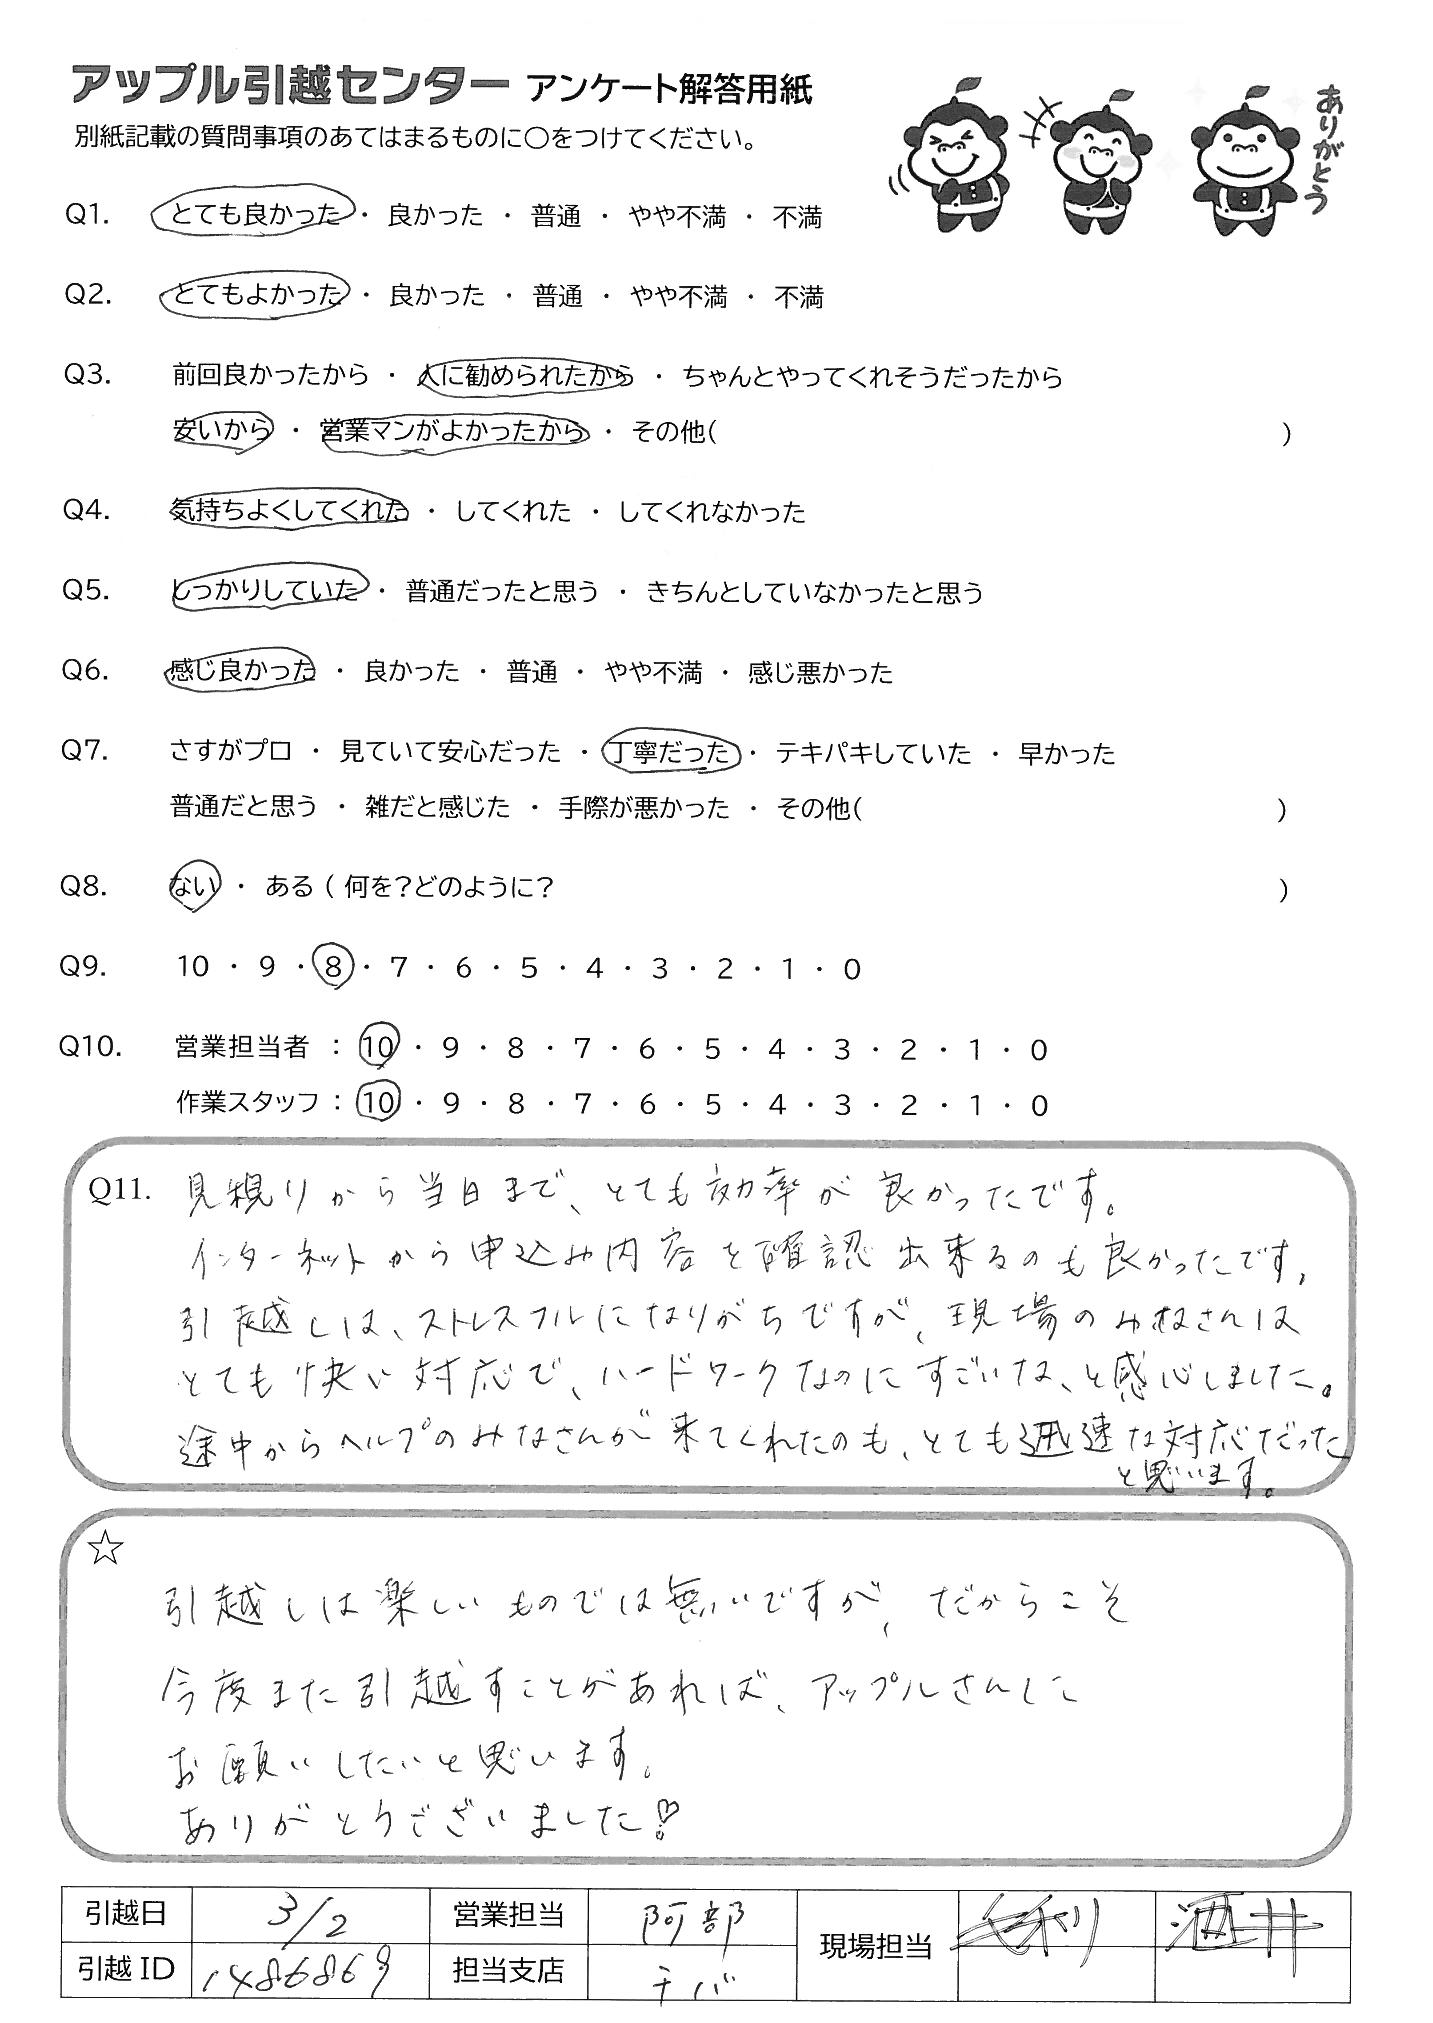 アップル引越センター アンケート解答用紙
別紙記載の質問事項のあてはまるものに○をつけてください。
ありがとう
Q1. とても良かった ・ 良かった ・ 普通 ・ やや不満 ・ 不満
Q2. とてもよかった ・ 良かった ・ 普通 ・ やや不満 ・ 不満
Q3. 前回良かったから ・ 人に勧められたから ・ ちゃんとやってくれそうだったから
安いから ・ 営業マンがよかったから ・ その他( )
Q4. 気持ちよくしてくれた ・ してくれた ・ してくれなかった
Q5. しっかりしていた ・ 普通だったと思う ・ きちんとしていなかったと思う
Q6. 感じ良かった ・ 良かった ・ 普通 ・ やや不満 ・ 感じ悪かった
Q7. さすがプロ ・ 見ていて安心だった ・ 丁寧だった ・ テキパキしていた ・ 早かった
普通だと思う ・ 雑だと感じた ・ 手際が悪かった ・ その他( )
Q8. ない ・ ある ( 何を?どのように? )
Q9. 10 ・ 9 ・ 8 ・ 7 ・ 6 ・ 5 ・ 4 ・ 3 ・ 2 ・ 1 ・ 0
Q10. 営業担当者 : 10 ・ 9 ・ 8 ・ 7 ・ 6 ・ 5 ・ 4 ・ 3 ・ 2 ・ 1 ・ 0
作業スタッフ : 10 ・ 9 ・ 8 ・ 7 ・ 6 ・ 5 ・ 4 ・ 3 ・ 2 ・ 1 ・ 0
Q11. 見積りから当日まで、とても効率が良かったです。
インターネットから申込み内容を確認出来るのも良かったです。
引越しは、ストレスフルになりがちですが、現場のみなさんは
とても快い対応で、ハードワークなのにすごいな、と感心しました。
途中からヘルプのみなさんが来てくれたのも、とても迅速な対応だった
と思います。
☆
引越しは楽しいものでは無いですが、だからこそ
今度また引越すことがあれば、アップルさんに
お願いしたいと思います。
ありがとうございました!
引越日 3/2 営業担当 阿部 現場担当 毛利 酒井
引越ID 1486869 担当支店 チバ